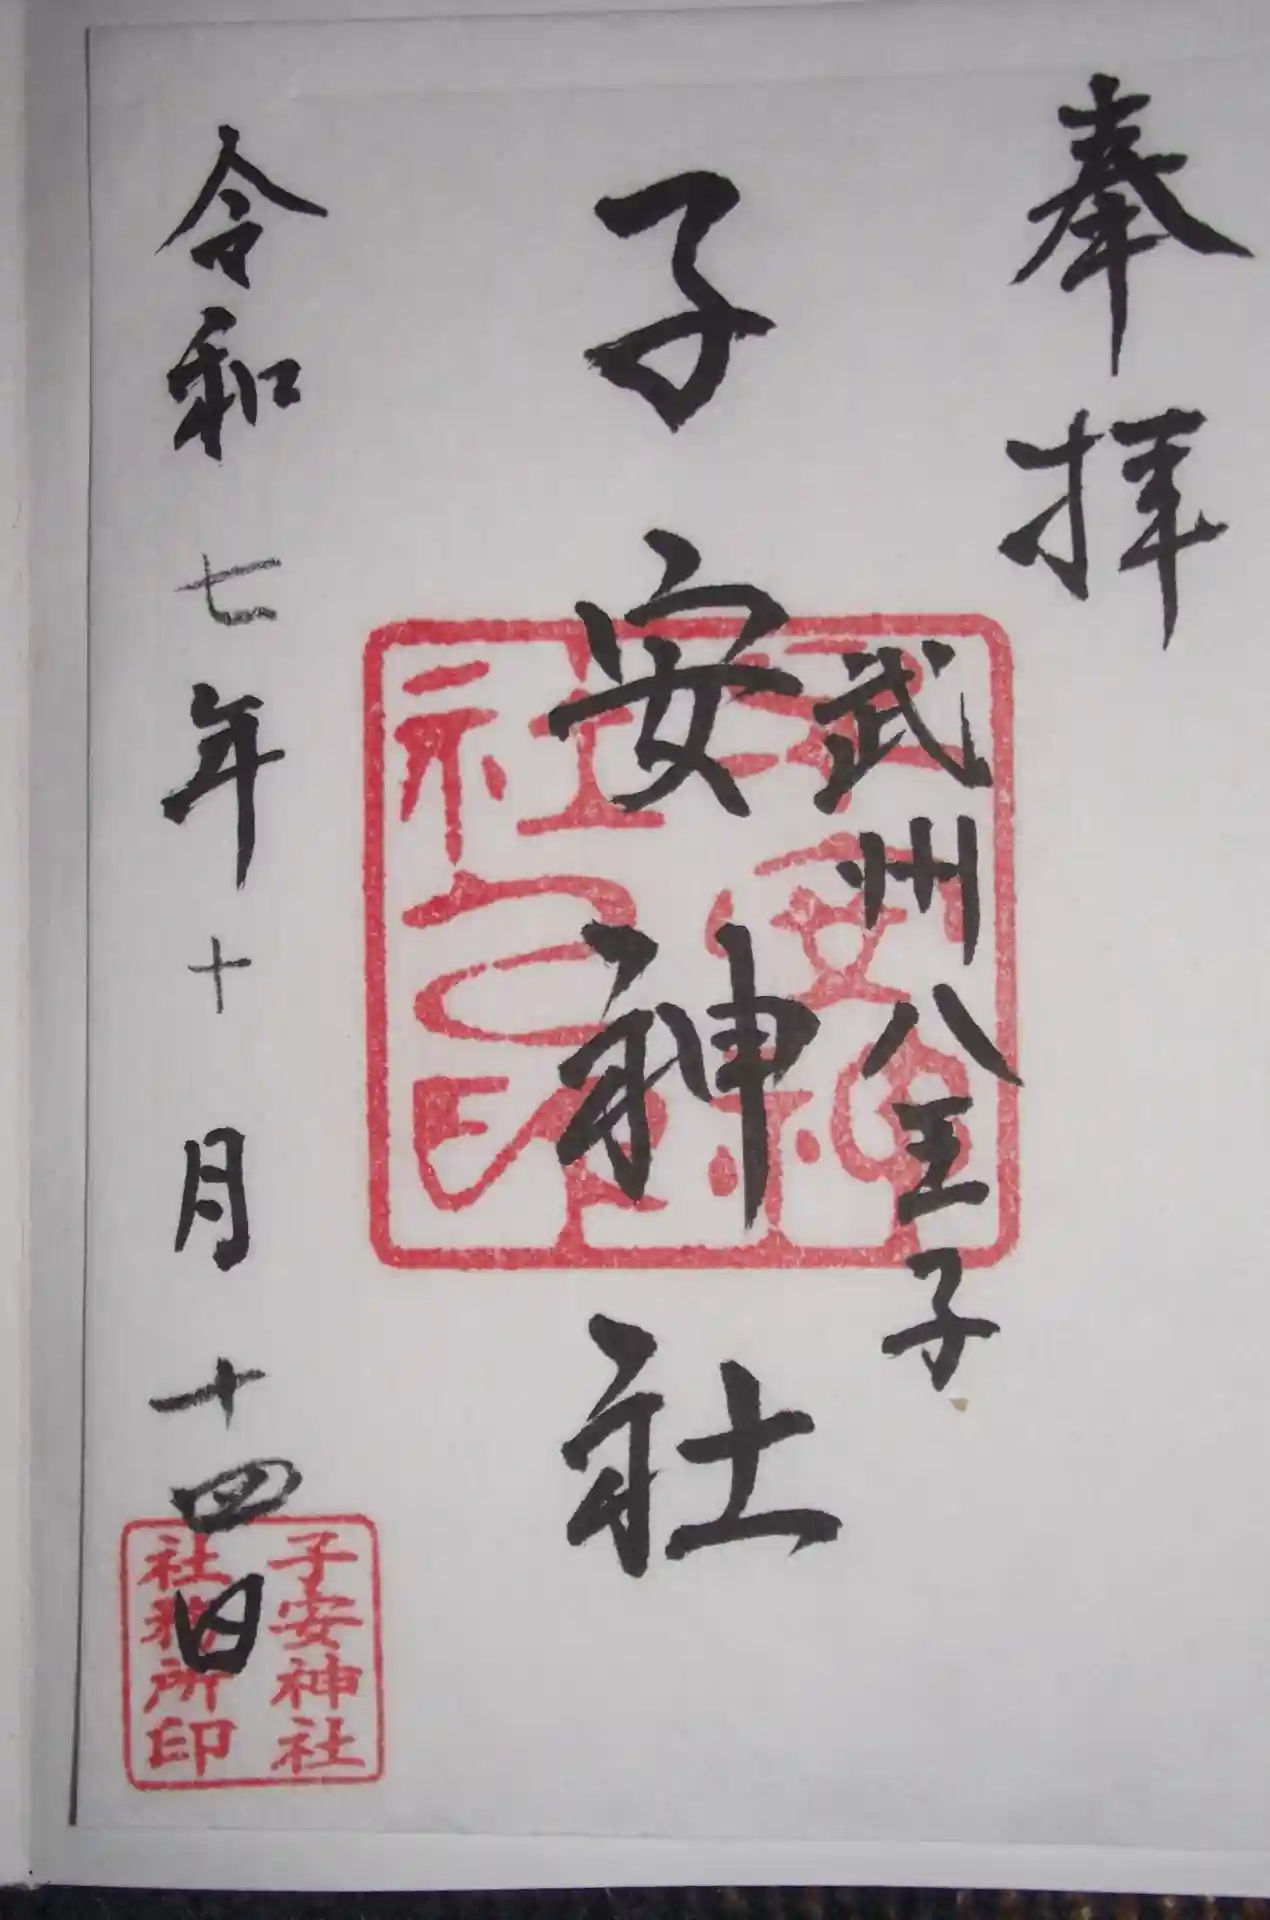 奉拝
武州八王子
子安神社
子安神社印
令和七年十月十四日
子安神社
社務所印